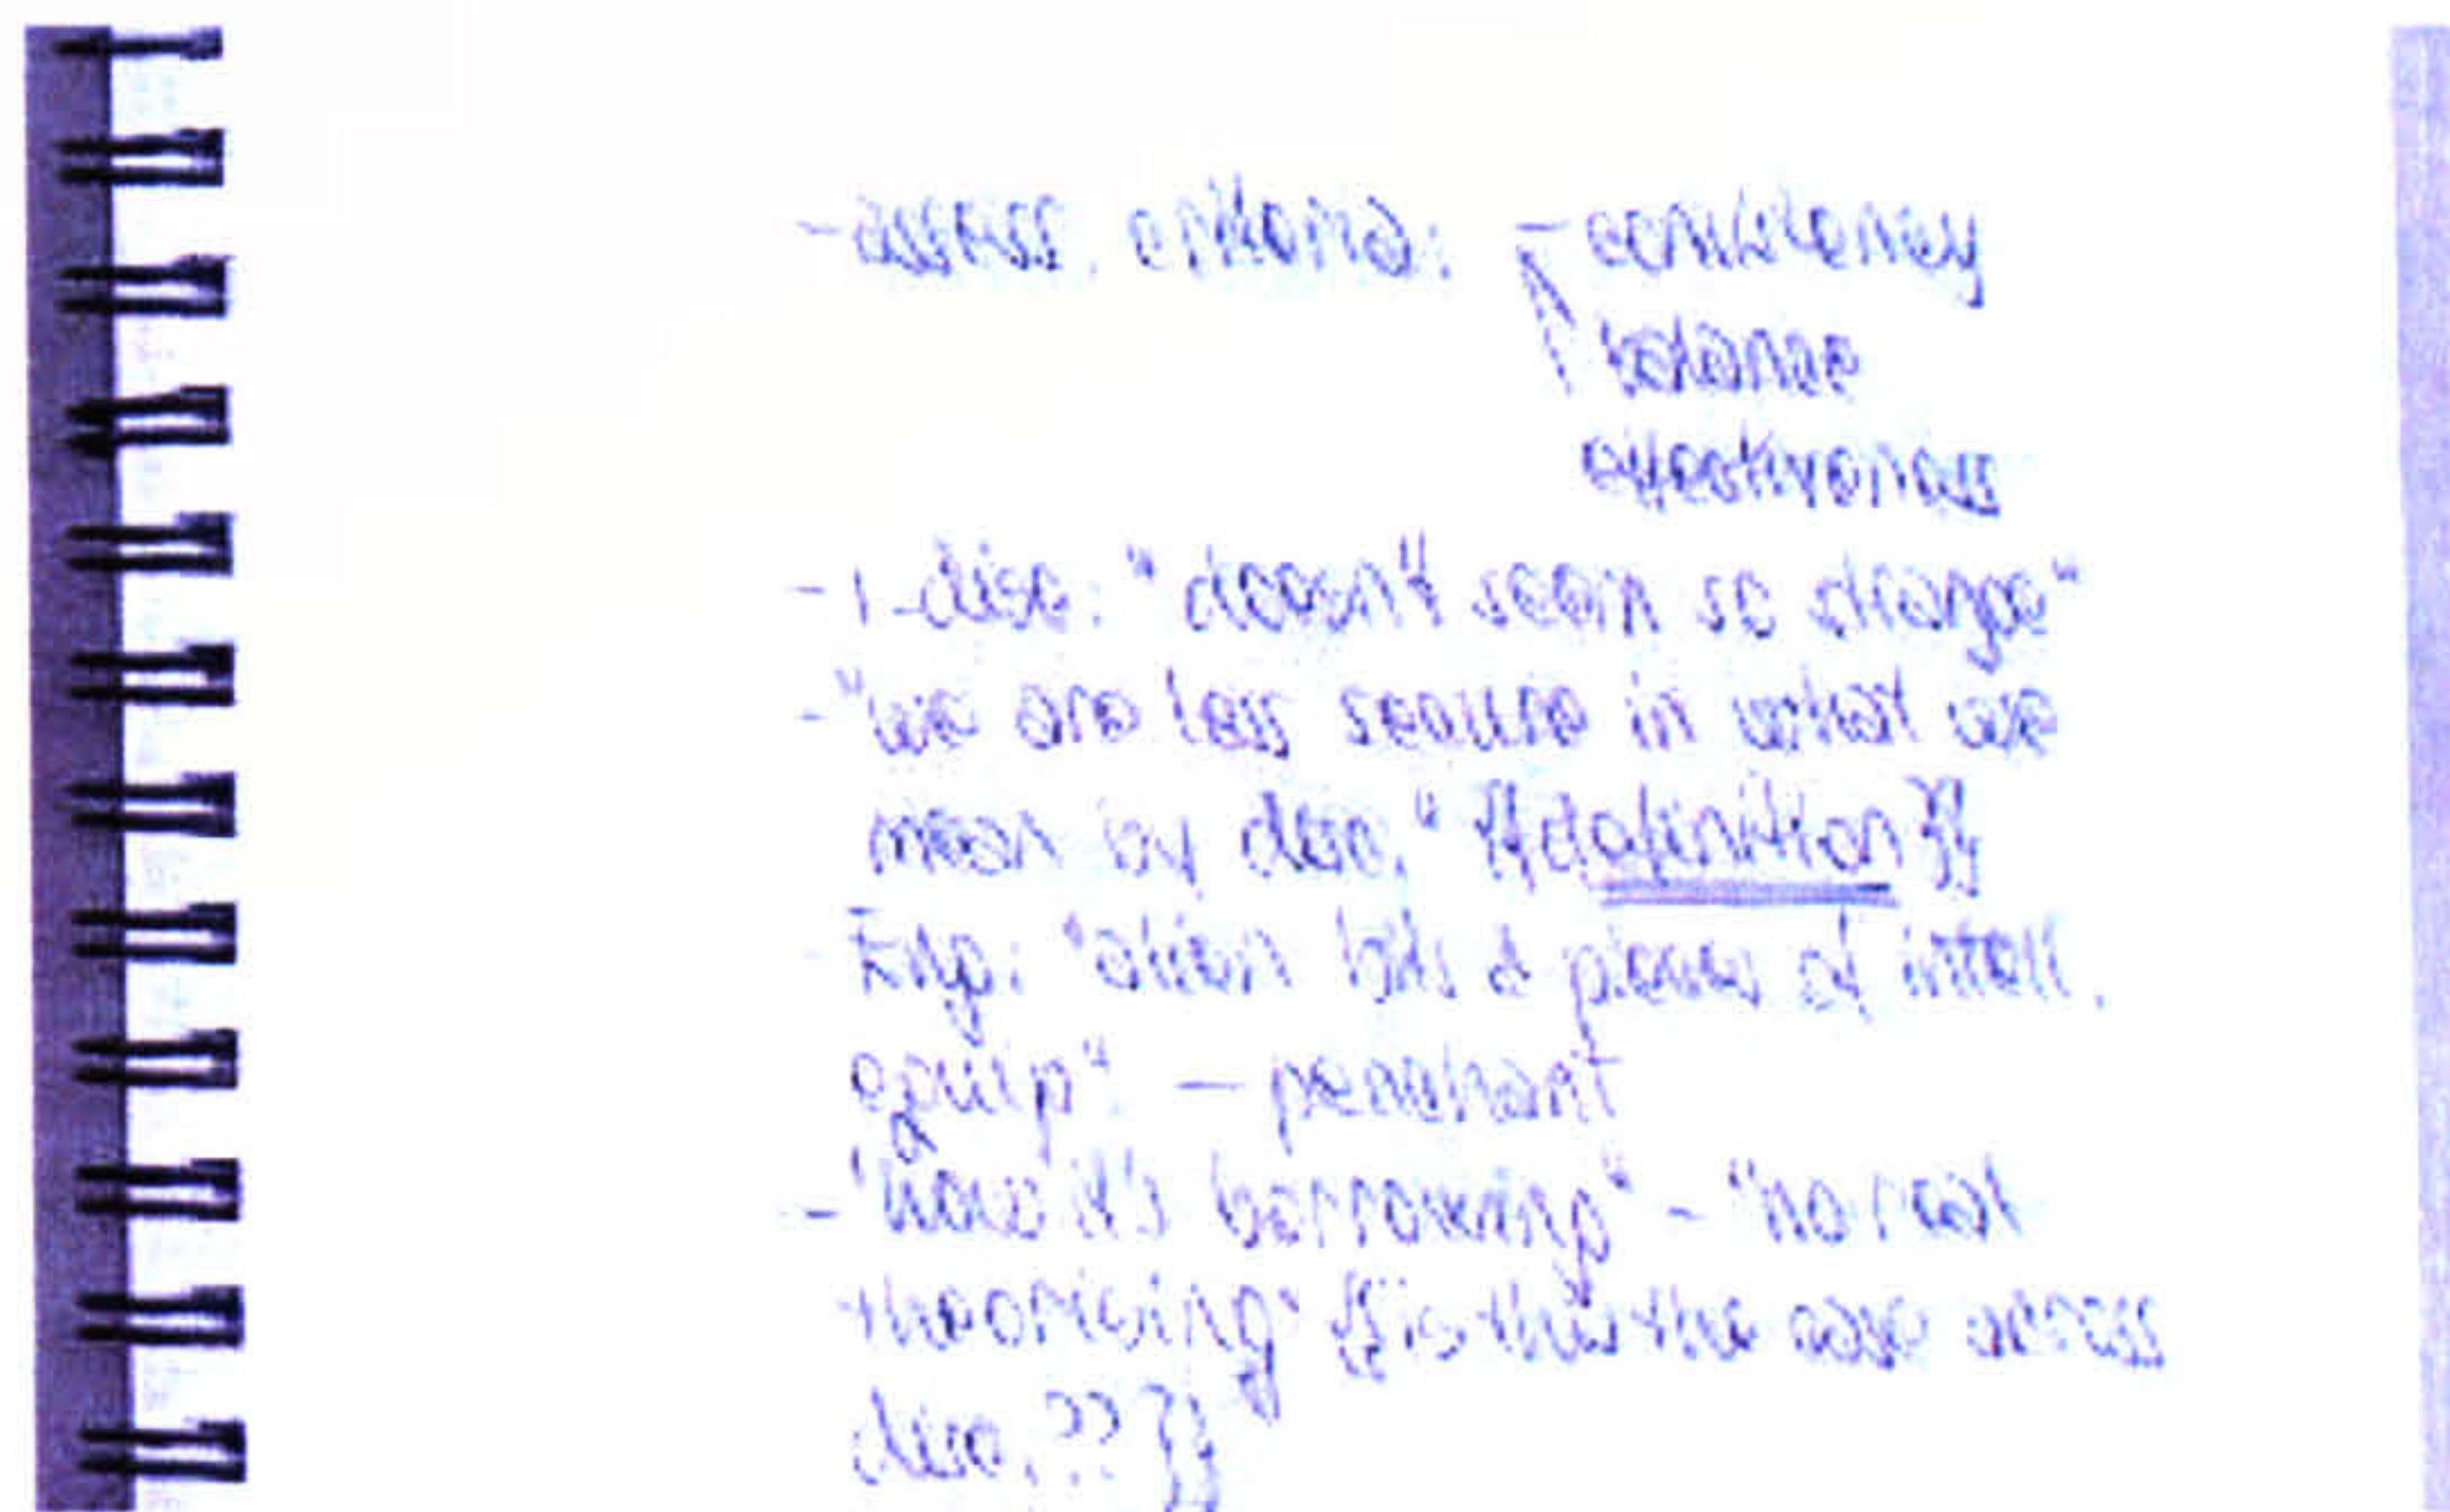 - assess. criteria: - consistency
balance
effectiveness
- 1-disc: "doesn't seem so strange"
- "we are less secure in what we
mean by disc." {{definition}}
- Eng: "alien bits & pieces of intell.
equip" - penchant
- "how it's borrowing" - "no real
theorising" {{is this the case across
disc.??}}